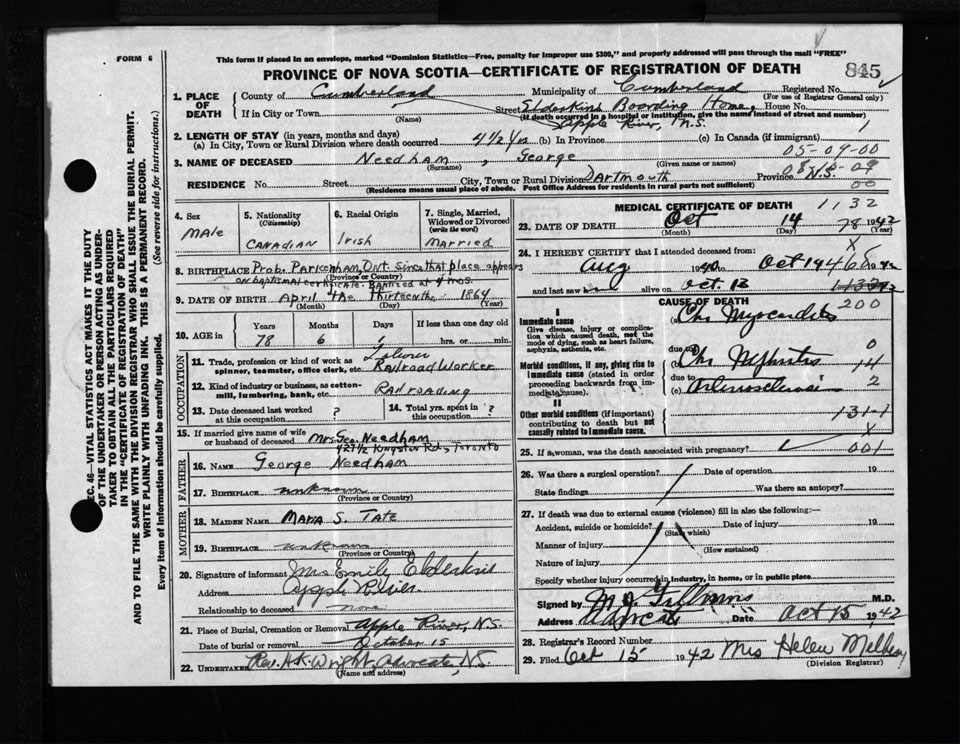 FORM 6
This form if placed in an envelope, marked "Dominion Statistics—Free, penalty for improper use $300," and properly addressed will pass through the mail "FREE"
PROVINCE OF NOVA SCOTIA—CERTIFICATE OF REGISTRATION OF DEATH
845
SEC. 46—VITAL STATISTICS ACT MAKES IT THE DUTY
OF THE UNDERTAKER OR PERSON ACTING AS UNDER-
TAKER TO OBTAIN ALL THE PARTICULARS REQUIRED
IN THE "CERTIFICATE OF REGISTRATION OF DEATH"
AND TO FILE THE SAME WITH THE DIVISION REGISTRAR WHO SHALL ISSUE THE BURIAL PERMIT.
WRITE PLAINLY WITH UNFADING INK. THIS IS A PERMANENT RECORD.
Every item of information should be carefully supplied. (See reverse side for instructions.)
1. PLACE OF DEATH
County of Cumberland Municipality of Cumberland Registered No.
(For use of Registrar General only)
If in City or Town (Name) Street Elderkins Boarding Home, House No.
(If death occurred in a hospital or institution, give the name instead of street and number)
Apple River, N.S. 1
2. LENGTH OF STAY (in years, months and days)
(a) In City, Town or Rural Division where death occurred 4 1/2 yrs (b) In Province (c) In Canada (if immigrant)
05-09-00
3. NAME OF DECEASED Needham, George
(Surname) (Given name or names)
RESIDENCE No. Street City, Town or Rural Division Dartmouth Province N.S.
(Residence means usual place of abode. Post Office Address for residents in rural parts not sufficient)
00
4. Sex
Male
5. Nationality (Citizenship)
Canadian
6. Racial Origin
Irish
7. Single, Married, Widowed or Divorced (write the word)
Married
8. BIRTHPLACE Prob. Parkenham, Ont. since that place appears
(Province or Country)
on baptismal certificate. Baptized at 9 mos.
9. DATE OF BIRTH April the Thirteenth 1864
(Month) (Day) (Year)
10. AGE in Years Months Days If less than one day old
78 6 1 hrs. or min.
OCCUPATION
11. Trade, profession or kind of work as spinner, teamster, office clerk, etc. Laborer Railroad Worker
12. Kind of industry or business, as cotton-mill, lumbering, bank, etc. Railroading
13. Date deceased last worked at this occupation ? 14. Total yrs. spent in this occupation ?
15. If married give name of wife or husband of deceased Mrs Geo. Needham
427 1/2 Kingston Rd., Toronto
FATHER
16. NAME George Needham
17. BIRTHPLACE unknown
(Province or Country)
MOTHER
18. MAIDEN NAME Maria S. Tate
19. BIRTHPLACE unknown
(Province or Country)
20. Signature of informant Mrs Emily Elderkin
Address Apple River
Relationship to deceased none
21. Place of Burial, Cremation or Removal Apple River, N.S.
Date of burial or removal October 15
22. UNDERTAKER Rev. H.K. Wright, Advocate, N.S.
(Name and address)
MEDICAL CERTIFICATE OF DEATH 1132
23. DATE OF DEATH Oct 14 78 1942
(Month) (Day) (Year)
24. I HEREBY CERTIFY that I attended deceased from:
Aug 1940 to Oct 14 1942
and last saw h alive on Oct. 13
CAUSE OF DEATH
200
I
Immediate cause
Give disease, injury or complication which caused death, not the mode of dying, such as heart failure, asphyxia, asthenia, etc.
(a) Chr Myocarditis
due to 0
Morbid conditions, if any, giving rise to immediate cause (stated in order proceeding backwards from immediate cause).
(b) Chr Nephritis 14
due to
(c) Arteriosclerosis 2
II
Other morbid conditions (if important) contributing to death but not causally related to immediate cause.
25. If a woman, was the death associated with pregnancy? 001
26. Was there a surgical operation? Date of operation 19
State findings Was there an autopsy?
27. If death was due to external causes (violence) fill in also the following:—
Accident, suicide or homicide? Date of injury 19
(State which)
Manner of injury
(How sustained)
Nature of injury
Specify whether injury occurred in industry, in home, or in public place
Signed by M.D.
Address Advocate Date Oct 15 1942
28. Registrar's Record Number
29. Filed Oct 15 1942 Mrs Helen
(Division Registrar)